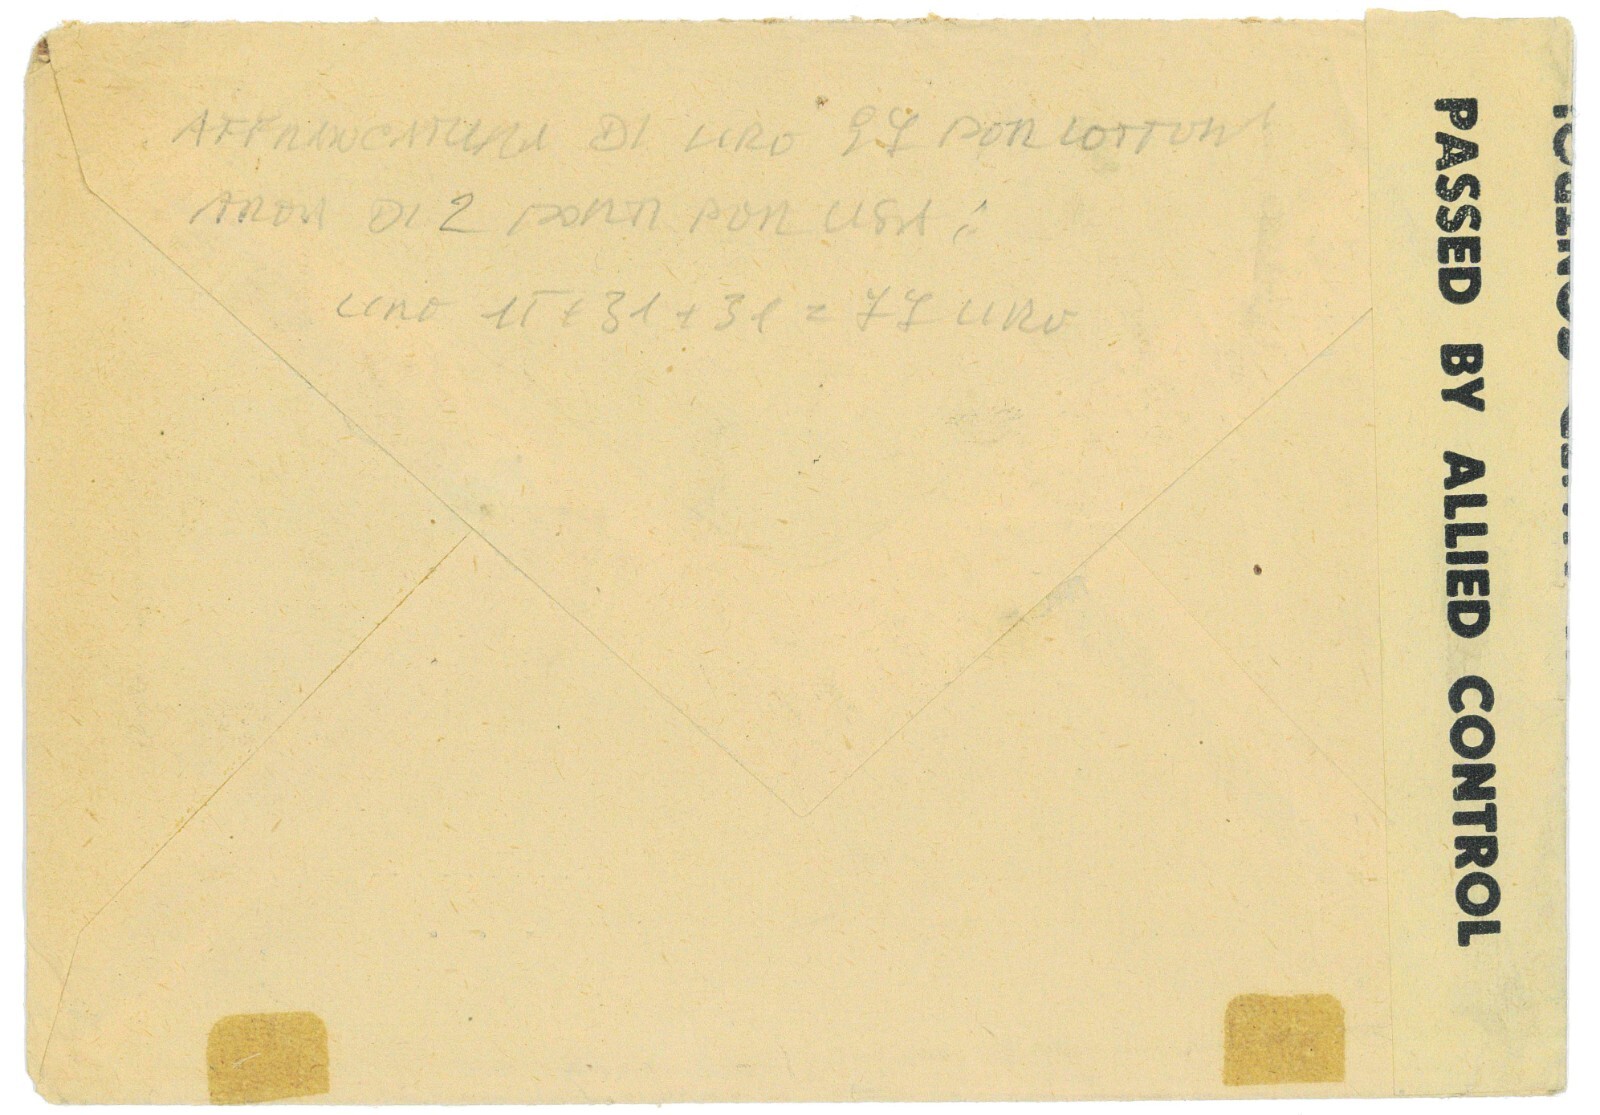 AFFRANCATURA DI LIRE 77 PER LETTERA
AEREA DI 2 PORTI PER USA:
LIRE 15 + 31 + 31 = 77 LIRE
PASSED BY ALLIED CONTROL